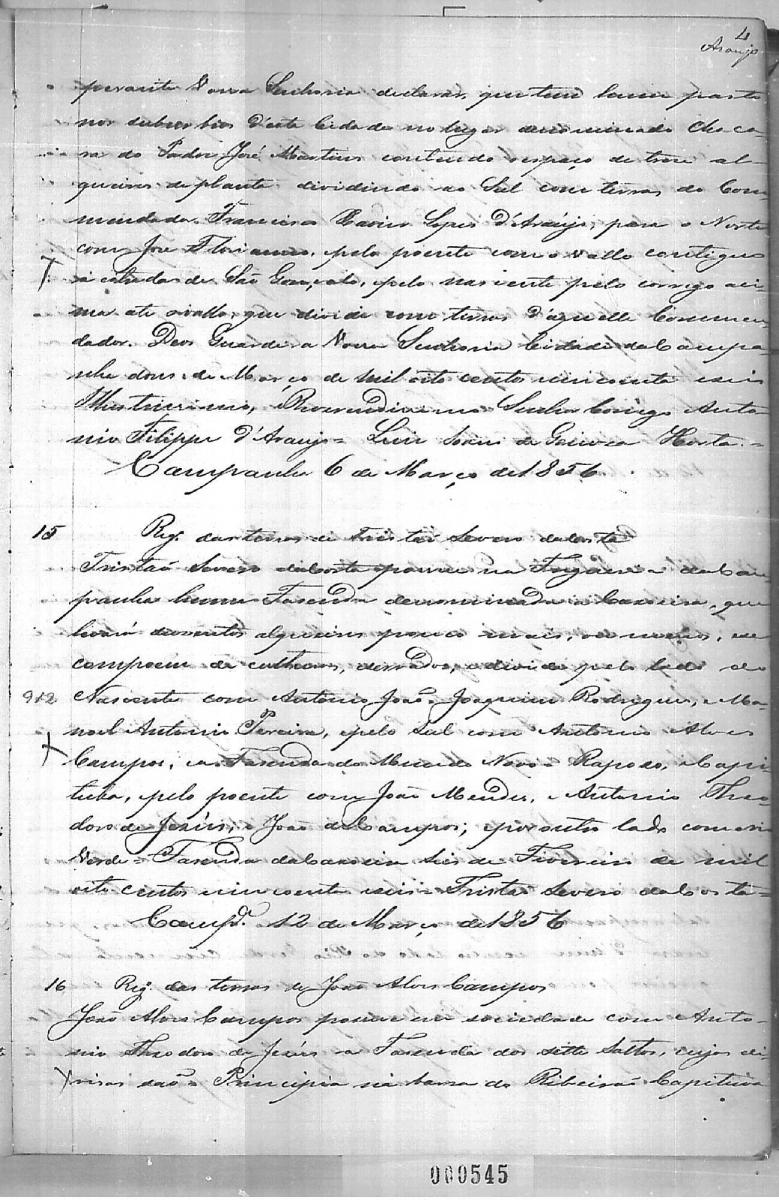 4
Araujo
perante Vossa Senhoria declarar, que tem hum pasto
nos suburbios d'esta Cidade no lugar denominado Chaca
ra do Padre José Martins contendo o espaço de tres al
queires de planta dividindo ao Sul com terras do Com
mendador Francisco Xavier Lopes d'Araujo, para o Norte
com José Floriano, pelo poente com o vallo contiguo
a estrada de São Gonçalo, pelo nascente pelo corrego aci
ma até o vallo, que divide com terras d'aquelle Commen
dador. Deos Guarde a Vossa Senhoria Cidade da Campa
nha dous de Março de mil oito cento cincoenta e seis
Illustrissimo, e Reverendissimo Senhor Conego Anto
nio Filippe d'Araujo = Luiz de Horta =
Campanha 6 de Março de 1856
15 Reg. das terras de Tristão Severo da Costa
Tristão Severo da Costa possue na Freguesia da Cam
panha huma Fazenda denominada a Caxoeira, que
levará duzentos alqueires pouco mais, ou menos, e se
compoem de culturas, serrados, e divide pelo lado do
912 Nascente com Antonio João, Joaquim Rodrigues, e Ma
noel Antonio Pereira, e pelo Sul com Antonio Alves
Campos, e a Fazenda do Mundo Novo e Raposo, e Capi
tuba, pelo poente com João Mendes, e Antonio Theo
doro de Jesús, e João de Campos; e por outro lado com o rio
Verde = Fazenda da Caxoeira seis de Fevereiro de mil
oito centos e cincoenta e seis = Tristão Severo da Costa =
Camp.ª 12 de Março de 1856
16 Reg. das terras de João Alves Campos
João Alves Campos possue na sociedade com Anto
nio Theodoro de Jesús a Fazenda dos sette Saltos, cujas di
visas são = Principia na barra do Ribeirão Capituva
000545